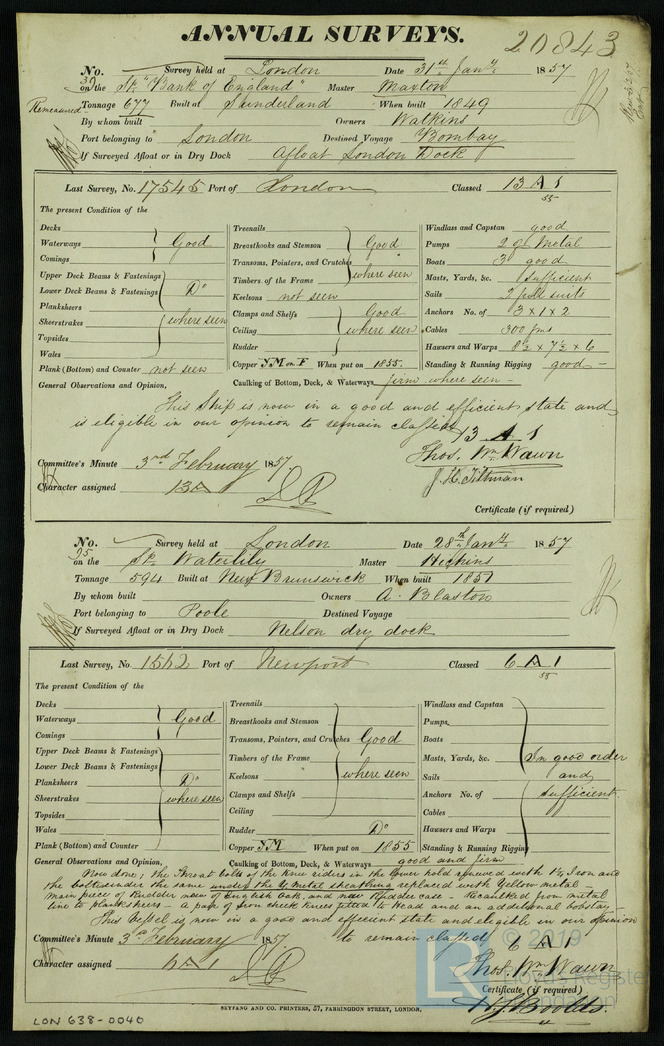 ANNUAL SURVEYS.
20843
No. Survey held at London Date 31st Jany 1857
on the Sp. "Bank of England" Master Maxton
Remeasured Tonnage 677 Built at Sunderland When built 1849
By whom built Owners Watkins
Port belonging to London Destined Voyage Bombay
If Surveyed Afloat or in Dry Dock Afloat London Dock
Last Survey, No. 17545 Port of London Classed 13 A 1
55
The present Condition of the
Decks
Waterways Good
Comings
Upper Deck Beams & Fastenings
Lower Deck Beams & Fastenings Do
Planksheers
Sheerstrakes where seen
Topsides
Wales
Plank (Bottom) and Counter not seen
Treenails
Breasthooks and Stemson Good
Transoms, Pointers, and Crutches
Timbers of the Frame where seen
Keelsons not seen
Clamps and Shelfs Good
Ceiling where seen
Rudder
Copper YM on F When put on 1855.
Windlass and Capstan good
Pumps 2 of Metal
Boats 3 good
Masts, Yards, &c. Sufficient
Sails 2 full suits
Anchors No. of 3 x 1 x 2
Cables 300 fms
Hawsers and Warps 8½ x 7½ x 6
Standing & Running Rigging good
General Observations and Opinion, Caulking of Bottom, Deck, & Waterways firm where seen
This Ship is now in a good and efficient state and
is eligible in our opinion to remain classed 13 A 1
Thos. Wm Wawn
J. H. Tillman
Committee's Minute 3rd February 1857
Character assigned 13A
Certificate (if required)
No. Survey held at London Date 28th Jany 1857
on the Sp. Waterlily Master Hopkins
Tonnage 594 Built at New Brunswick When built 1851
By whom built Owners A. Blaston
Port belonging to Poole Destined Voyage
If Surveyed Afloat or in Dry Dock Nelson dry dock
Last Survey, No. 1562 Port of Newport Classed 6 A 1
55
The present Condition of the
Decks
Waterways Good
Comings
Upper Deck Beams & Fastenings
Lower Deck Beams & Fastenings
Planksheers Do
Sheerstrakes where seen
Topsides
Wales
Plank (Bottom) and Counter
Treenails
Breasthooks and Stemson
Transoms, Pointers, and Crutches Good
Timbers of the Frame
Keelsons where seen
Clamps and Shelfs
Ceiling
Rudder Do
Copper YM When put on 1855
Windlass and Capstan
Pumps
Boats
Masts, Yards, &c. In good order
Sails and
Anchors No. of Sufficient.
Cables
Hawsers and Warps
Standing & Running Rigging
General Observations and Opinion, Caulking of Bottom, Deck, & Waterways good and firm
Now done; the throat bolts of the knee riders in the lower hold renewed with 1⅛ Iron and
the bolts under the same under the Y. metal sheathing replaced with Yellow metal
main piece of Rudder new of English Oak, and new Rudder case. Recaulked from metal
line to planksheers - a pair of iron cheek knees fitted to Head and a additional bobstay
This Vessel is now in a good and efficient state and eligible in our opinion
Committee's Minute 3d February 1857. to remain classed 6 A 1
Character assigned 6A1
Thos. Wm Wawn
Certificate (if required)
SEYFANG AND CO. PRINTERS, 57, FARRINGDON STREET, LONDON.
LON 638-0040
© 2019
Lloyds Register
Foundation